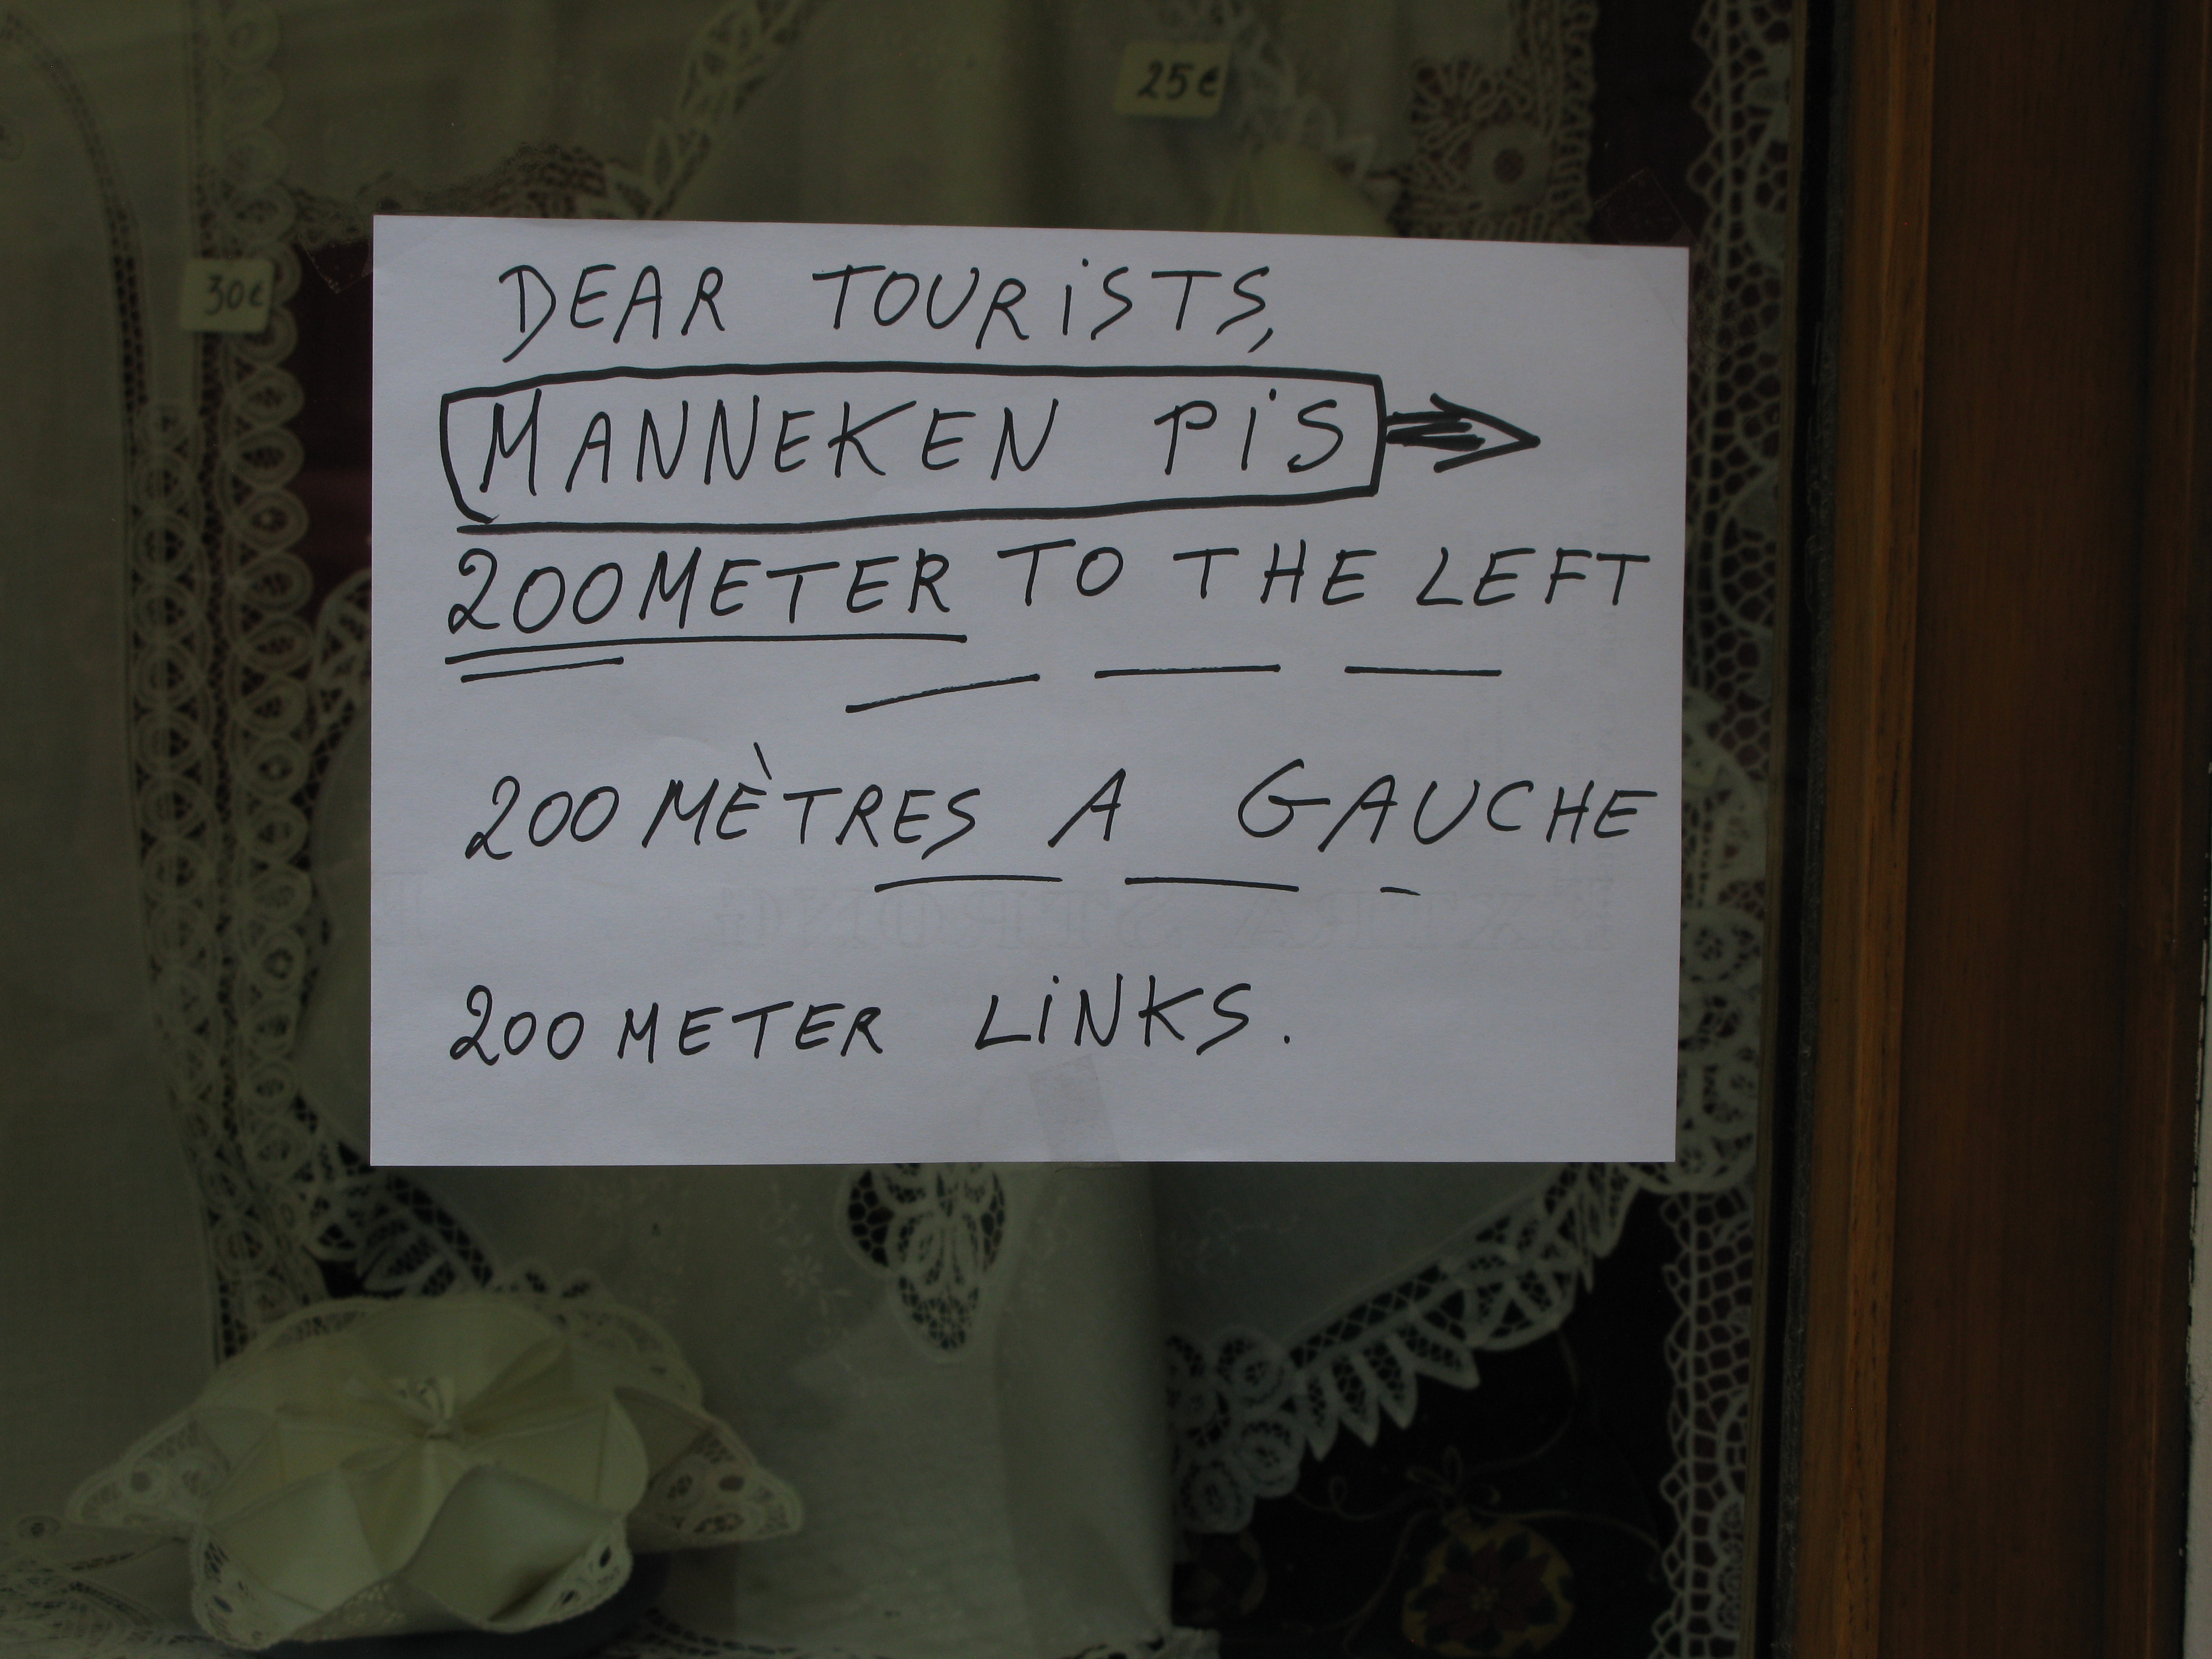 25€
30€
DEAR TOURiSTS,
MANNEKEN PiS
200 METER TO THE LEFT
200 MÈTRES A GAUCHE
200 METER LiNKS.